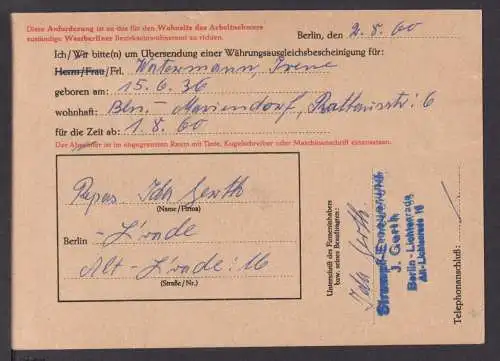 Diese Anforderung ist an das für den Wohnsitz des Arbeitnehmers
zuständige Westberliner Bezirkseinwohneramt zu richten.
Berlin, den 2.8.60
Ich/Wir bitte(n) um Übersendung einer Währungsausgleichsbescheinigung für:
Herrn/Frau/Frl. Watermann, Irene
geboren am: 15.6.36
wohnhaft: Bln.- Mariendorf, Rathausstr: 6
für die Zeit ab: 1.8.60
Der Absender ist im umgrenzten Raum mit Tinte, Kugelschreiber oder Maschinenschrift einzusetzen.
Repas. Ida Gerth
(Name/Firma)
Berlin - L'rade
Alt - L'rade: 16
(Straße/Nr.)
Unterschrift des Firmeninhabers
bzw. seines Beauftragten:
Ida Gerth.
J. Gerth
Berlin-Lichtenrade
Alt-Lichtenrade 16
Telephonanschluß: